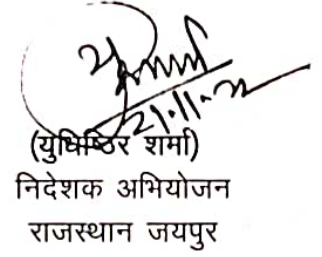 21.11.22
(युधिष्ठिर शर्मा)
निदेशक अभियोजन
राजस्थान जयपुर